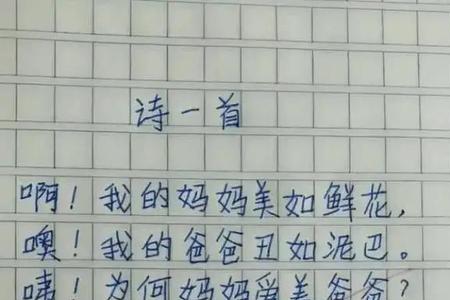 诗一首
啊！我的妈妈美如鲜花，
噢！我的爸爸丑如泥巴。
咦！为何妈妈爱美爸爸？